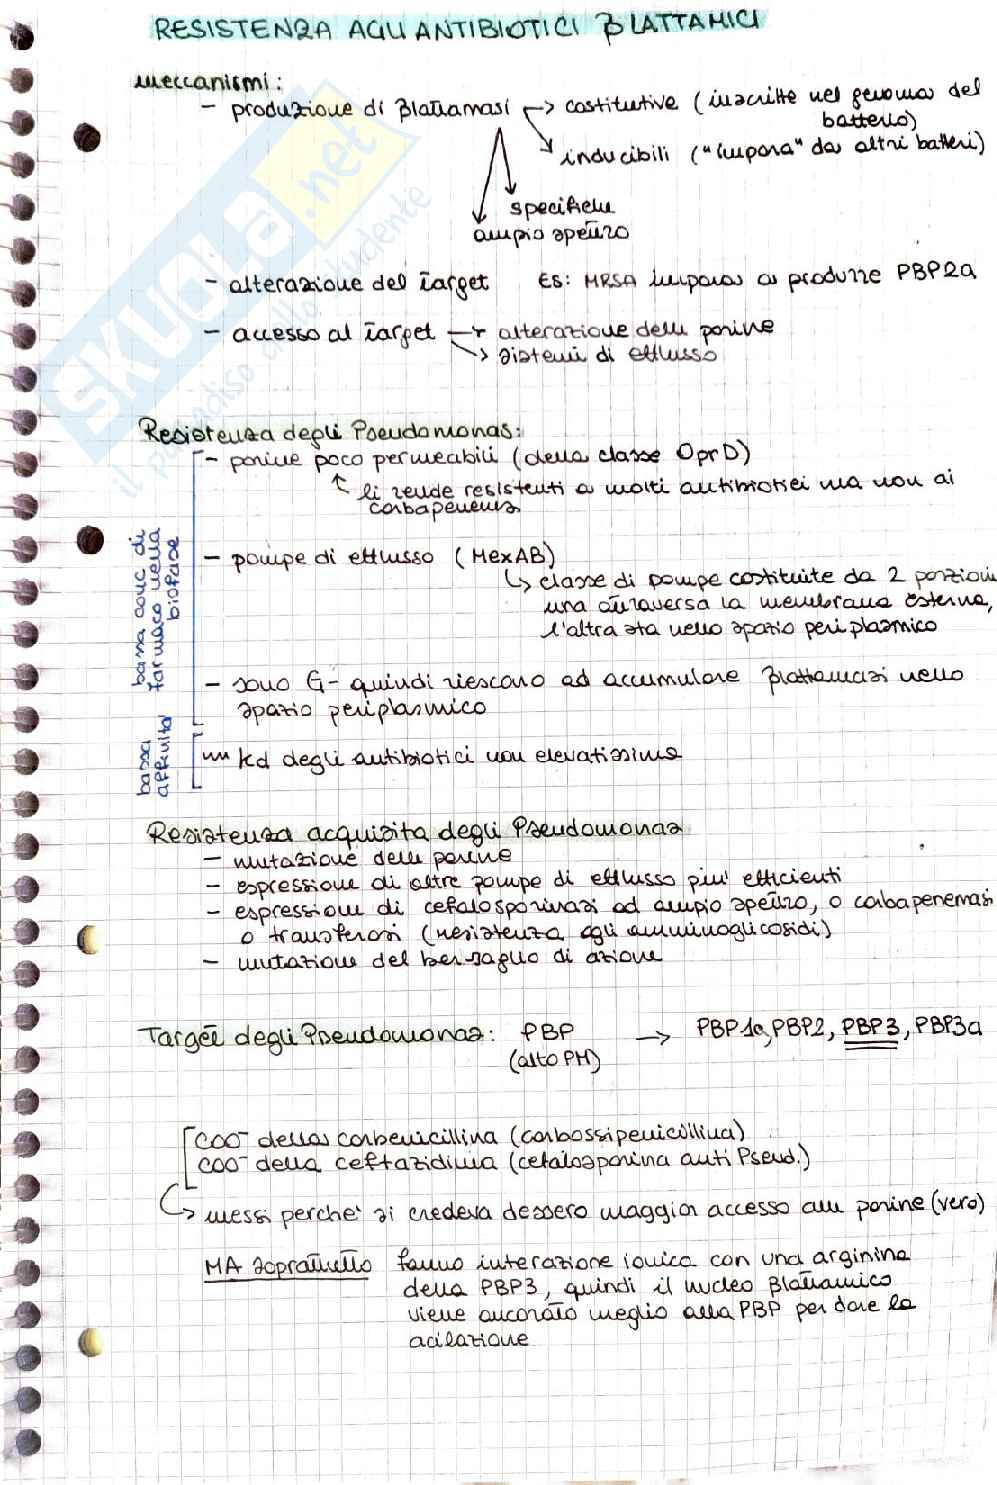 RESISTENZA AGLI ANTIBIOTICI βLATTAMICI
meccanismi:
- produzione di βlattamasi → costitutive (inscritte nel genoma del
batterio)
↘ inducibili ("impara" da altri batteri)
specifiche
ampio spettro
- alterazione del target ES: MRSA impara a produrre PBP2a
- accesso al target → alterazione delle porine
↘ sistemi di efflusso
Resistenza degli Pseudomonas:
- porine poco permeabili (della classe OprD)
↑ li rende resistenti a molti antibiotici ma non ai
carbapenemi
- pompe di efflusso (MexAB)
↳ classe di pompe costituite da 2 porzioni
una attraversa la membrana esterna,
l'altra sta nello spazio periplasmico
- sono G- quindi riescono ad accumulare βlattamasi nello
spazio periplasmico
- kd degli antibiotici non elevatissima
bassa conc di
farmaco nella
biofase
bassa
affinità
Resistenza acquisita degli Pseudomonas
- mutazione delle porine
- espressione di altre pompe di efflusso piu' efficienti
- espressione di cefalosporinasi ad ampio spettro, o carbapenemasi
o transferasi (resistenza agli amminoglicosidi)
- mutazione del bersaglio di azione
Target degli Pseudomonas: PBP → PBP1a, PBP2, PBP3, PBP3a
(alto PM)
COO⁻ della carbenicillina (carbossipenicillina)
COO⁻ della ceftazidima (cefalosporina antiPseud.)
↳ messi perche' si credeva dessero maggior accesso alle porine (vero)
MA soprattutto fanno interazione ionica con una arginina
della PBP3, quindi il nucleo βlattamico
viene ancorato meglio alla PBP per dare la
acilazione
SKUOLA.net
il paradiso dello studente